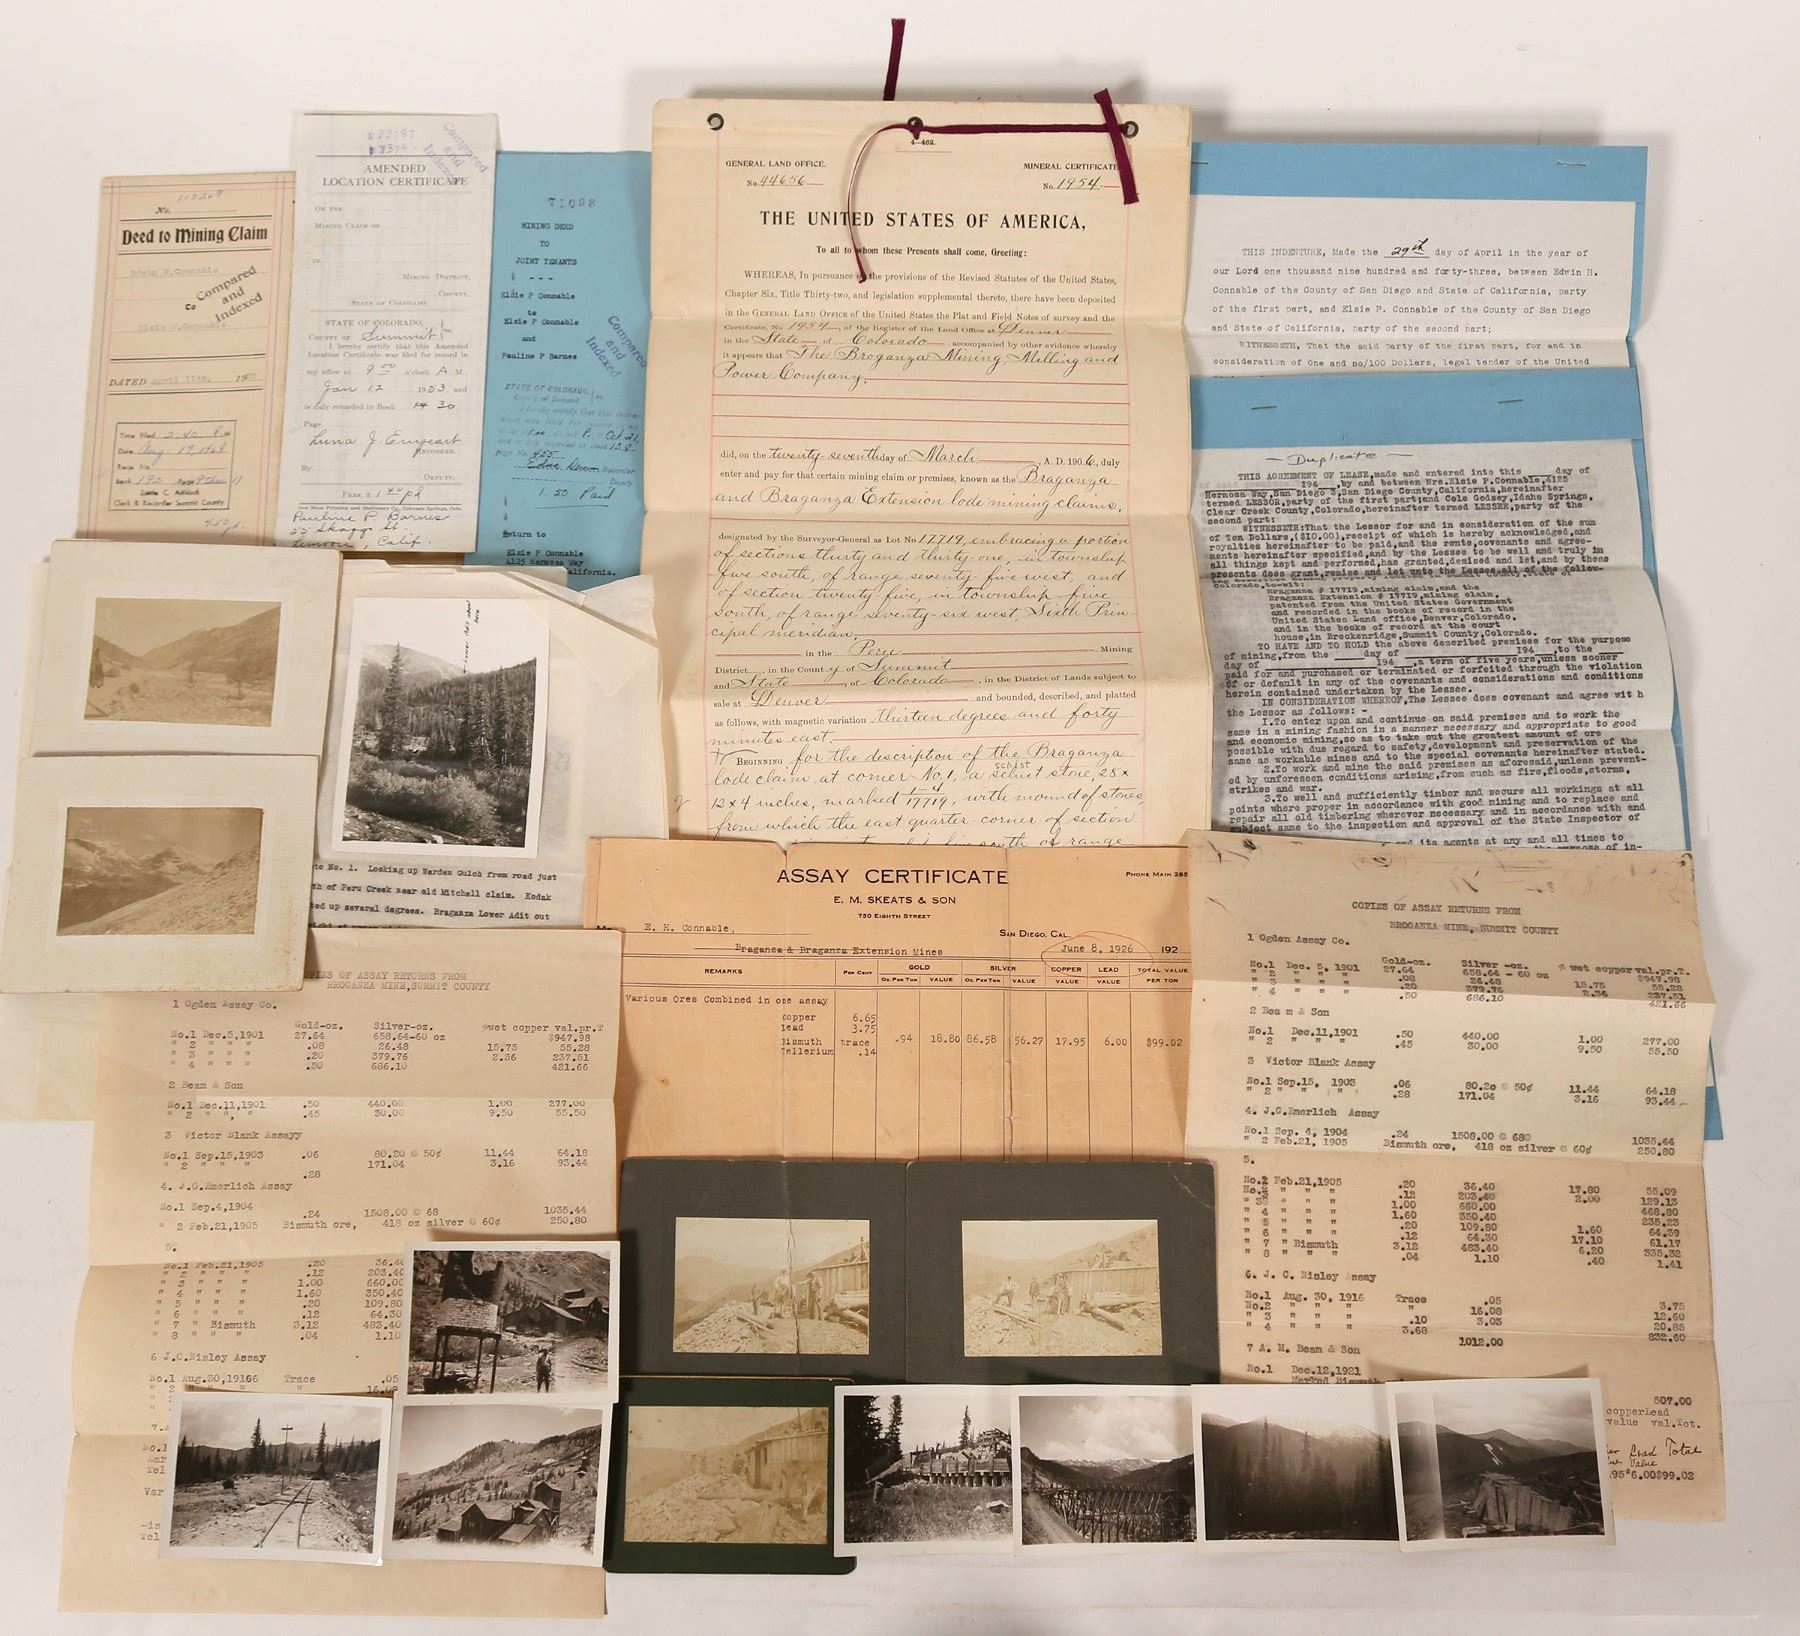 110269
No.
Deed to Mining Claim
Edwin H. Connable
to
Elsie P. Connable
Compared
and
Indexed
DATED April 11th, 19
Time Filed 2:40 P.M
Date Aug. 19, 1968
Recp. No.
Book 192 Page
Clerk & Recorder Summit County
4.50 pd.
73797
Compared
and
Indexed
AMENDED
LOCATION CERTIFICATE
ON THE
MINING CLAIM OF
IN
MINING DISTRICT,
COUNTY,
STATE OF COLORADO.
STATE OF COLORADO,
COUNTY OF Summit
I hereby certify that this Amended
Location Certificate was filed for record in
my office at 9 00 o'clock A. M.,
Jan 12 1953 and
is duly recorded in Book 30
Page
RECORDER.
By
DEPUTY.
FEES, $ 1 40 pd
Pauline P. Barnes
55 Skagg St.
Lemoore, Calif.
71098
MINING DEED
TO
JOINT TENANTS
- - -
Elsie P Connable
to
Elsie P Connable
and
Pauline P Barnes
Compared
and
Indexed
STATE OF COLORADO,
County of Summit
I hereby certify that this
Oct 21,
page No. 455
Recorder
Deputy
1.50 Paid
Return to
Elsie P Connable
4125 Hermosa Way
California.
4-462.
GENERAL LAND OFFICE.
No. 44656.
MINERAL CERTIFICATE
No. 1954.
THE UNITED STATES OF AMERICA,
To all to whom these Presents shall come, Greeting:
WHEREAS, In pursuance of the provisions of the Revised Statutes of the United States,
Chapter Six, Title Thirty-two, and legislation supplemental thereto, there have been deposited
in the GENERAL LAND OFFICE of the United States the Plat and Field Notes of survey and the
Certificate, No. 1954, of the Register of the Land Office at Denver
in the State of Colorado accompanied by other evidence whereby
it appears that The Braganza Mining Milling and
Power Company,
did, on the twenty-seventh day of March, A. D. 1906, duly
enter and pay for that certain mining claim or premises, known as the Braganza
and Braganza Extension lode mining claims,
designated by the Surveyor-General as Lot No. 17719, embracing a portion
of sections thirty and thirty-one, in township
five south, of range seventy-five west, and
of section twenty-five, in township five
south, of range seventy-six west, Sixth Prin-
cipal meridian,
in the Peru Mining
District, in the County of Summit
and State of Colorado, in the District of Lands subject to
sale at Denver and bounded, described, and platted
as follows, with magnetic variation thirteen degrees and forty
minutes east.
BEGINNING for the description of the Braganza
lode claim at corner No. 1, a schist stone, 28 x
schist
12 x 4 inches, marked 1-4/17719, with mound of stones,
from which the east quarter-corner of section
five south of range
THIS INDENTURE, Made the 29th day of April in the year of
our Lord one thousand nine hundred and forty-three, between Edwin H.
Connable of the County of San Diego and State of California, party
of the first part, and Elsie P. Connable of the County of San Diego
and State of California, party of the second part;
WITNESSETH, That the said party of the first part, for and in
consideration of One and no/100 Dollars, legal tender of the United
- Duplicate -
THIS AGREEMENT OF LEASE,made and entered into this ____day of
194__,by and between Mrs.Elsie P.Connable,4125
Hermosa Way,San Diego 3,San Diego County,California,hereinafter
termed LESSOR,party of the first part;and Cole Godsey,Idaho Springs,
Clear Creek County,Colorado,hereinafter termed LESSEE,party of the
second part:
WITNESSETH:That the Lessor for and in consideration of the sum
of Ten Dollars,($10.00),receipt of which is hereby acknowledged,and
royalties hereinafter to be paid,and the rents,covenants and agree-
ments hereinafter specified,and by the Lessee to be well and truly in
all things kept and performed,has granted,demised and let,and by these
presents does grant,remise and let unto the Lessee,all of the follow-
Colorado,to-wit:
Braganza # 17719,mining claim,and the
Braganza Extension # 17719,mining claim,
patented from the United States Government
and recorded in the books of record in the
United States Land office,Denver,Colorado.
and in the books of record at the court
house,in Breckenridge,Summit County,Colorado.
TO HAVE AND TO HOLD the above described premises for the purpose
of mining,from the ____day of ____194__,to the ____
day of ____194__,a term of five years,unless sooner
paid for and purchased or terminated or forfeited through the violation
of or default in any of the covenants and considerations and conditions
herein contained undertaken by the Lessee.
IN CONSIDERATION WHEREOF,The Lessee does covenant and agree wit h
the Lessor as follows: -
1.To enter upon and continue on said premises and to work the
same in a mining fashion in a manner necessary and appropriate to good
and economic mining,so as to take out the greatest amount of ore
possible with due regard to safety,development and preservation of the
same as workable mines and to the special covenants hereinafter stated.
2.To work and mine the said premises as aforesaid,unless prevent-
ed by unforeseen conditions arising,from such as fire,floods,storms,
strikes and war.
3.To well and sufficiently timber and secure all workings at all
points where proper in accordance with good mining and to replace and
repair all old timbering wherever necessary and in accordance with and
subject same to the inspection and approval of the State Inspector of
and its agents at any and all times to
purpose of in-
to No. 1. Looking up Warden Gulch from road just
th of Peru Creek near old Mitchell claim. Kodak
ted up several degrees. Braganza Lower Adit out
ASSAY CERTIFICATE
PHONE MAIN 285
E. M. SKEATS & SON
750 EIGHTH STREET
E. H. Connable,
SAN DIEGO, CAL.
Braganza & Braganza Extension Mines
June 8, 1926 192
REMARKS PER CENT GOLD SILVER COPPER LEAD TOTAL VALUE
OZ. PER TON VALUE OZ. PER TON VALUE VALUE VALUE PER TON
Various Ores Combined in one assay
Copper 6.65
Lead 3.75
Bismuth trace .94 18.80 86.58 56.27 17.95 6.00 $99.02
Tellerium .14
COPIES OF ASSAY RETURNS FROM
BROGANZA MINE,SUMMIT COUNTY
1 Ogden Assay Co.
Gold-oz. Silver-oz. %wet copper val.pr.T
No.1 Dec.5,1901 27.64 658.64-60 oz $947.98
" 2 " " " .08 26.48 15.75 55.28
" 3 " " " .20 379.76 2.36 237.51
" 4 " " " .50 686.10 421.66
2 Beam & Son
No.1 Dec.11,1901 .50 440.00 1.00 277.00
" 2 " " " .45 30.00 9.50 55.50
3 Victor Blank Assayy
No.1 Sep.15,1903 .06 80.20 @ 50¢ 11.44 64.18
" 2 " " " 171.04 3.16 93.44
.28
4. J.G.Emerlich Assay
No.1 Sep.4,1904 .24 1508.00 @ 68 1035.44
" 2 Feb.21,1905 Bismuth ore, 418 oz silver @ 60¢ 250.80
5.
No.1 Feb.21,1905 .20 36.40
" 2 " " " .12 203.40
" 3 " " " 1.00 660.00
" 4 " " " 1.60 350.40
" 5 " " " .20 109.80
" 6 " " " .12 64.30
" 7 " Bismuth 3.12 483.40
" 8 " " " .04 1.10
6 J.C.Risley Assay
No.1 Aug.30,19166 Trace .05
16.08
COPIES OF ASSAY RETURNS FROM
BROGANZA MINE, SUMMIT COUNTY
1 Ogden Assay Co.
Gold-oz. Silver -oz. % wet copper val.pr.T.
No.1 Dec. 5, 1901 27.64 658.64 - 60 oz $947.98
" 2 " " " .08 26.48 15.75 55.28
" 3 " " " .20 379.76 2.36 237.51
" 4 " " " .50 686.10 421.66
2 Bea m & Son
No.1 Dec.11,1901 .50 440.00 1.00 277.00
" 2 " " " .45 30.00 9.50 55.50
3 Victor Blank Assay
No.1 Sep.15, 1903 .06 80.20 @ 50¢ 11.44 64.18
" 2 " " " .28 171.04 3.16 93.44
4. J.G.Emerlich Assay
No.1 Sep. 4, 1904 .24 1508.00 @ 68@ 1035.44
" 2 Feb.21, 1905 Bismuth ore, 418 oz silver @ 60¢ 250.80
5.
No.1 Feb.21,1905 .20 36.40 17.80 55.09
No.2 " " " .12 203.40 2.00 129.13
" 3 " " " 1.00 660.00 468.80
" 4 " " " 1.60 350.40 235.23
" 5 " " " .20 109.80 1.60 64.39
" 6 " " " .12 64.30 17.10 61.17
" 7 " Bismuth 3.12 483.40 6.20 335.32
" 8 " " " .04 1.10 .40 1.41
6. J. C. Risley Assay
No.1 Aug. 30, 1916 Trace .05
No.2 " " " " 16.08 3.75
" 3 " " " .10 3.03 12.60
" 4 " " " 3.68 20.85
1012.00 832.60
7 A. M. Beam & Son
No.1 Dec.12,1921
Marked Bismuth
507.00
copperLead
value val.Tot.
Lead Total
Value
95*6.00$99.02